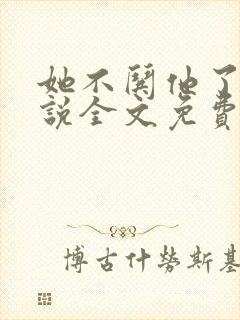 她不鬨他了
說全文免費
博古什勞斯基